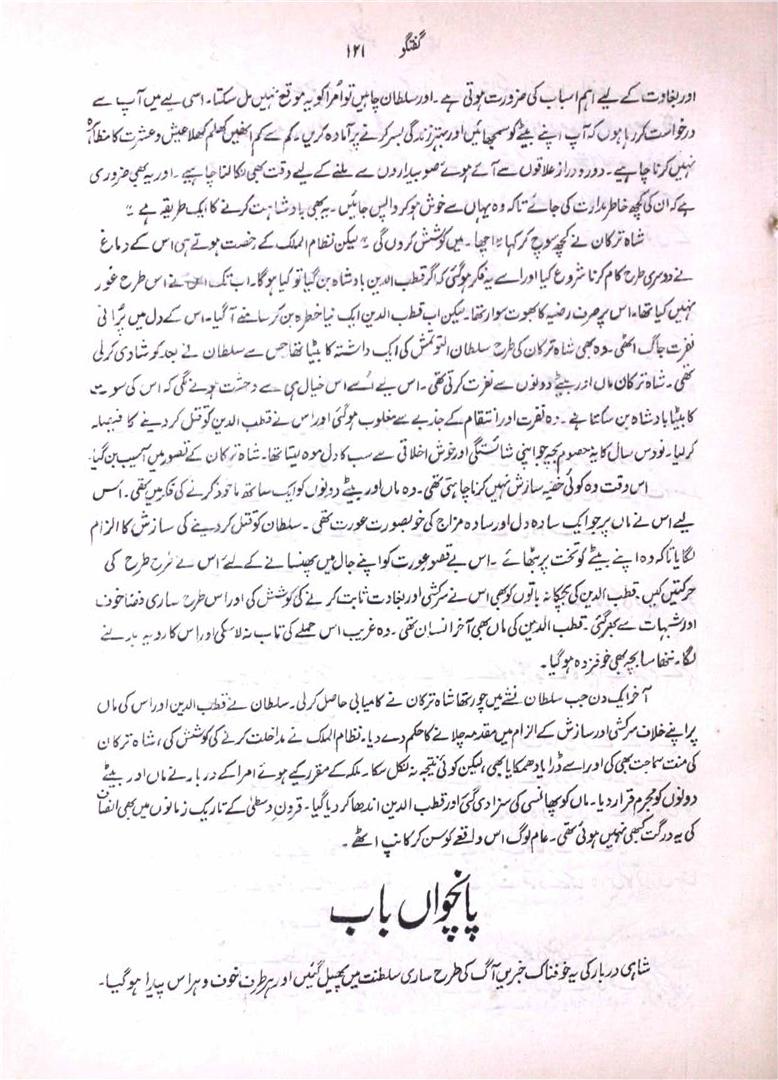 گفتگو ۱۲۱
اور بغاوت کے لیے اہم اسباب کی ضرورت ہوتی ہے۔ اور سلطان چاہیں تو اُمرا کو یہ موقع نہیں مل سکتا۔ اسی لیے میں آپ سے
درخواست کر رہا ہوں کہ آپ اپنے بیٹے کو سمجھائیں اور بہتر زندگی بسر کرنے پر آمادہ کریں۔ کم سے کم انھیں کھلم کھلا عیش و عشرت کا مظاہرہ
نہیں کرنا چاہیے۔ دور و دراز علاقوں سے آئے ہوئے صوبیداروں سے ملنے کے لیے وقت بھی نکالنا چاہیے۔ اور یہ بھی ضروری
ہے کہ ان کی کچھ خاطر مدارت کی جائے تاکہ وہ یہاں سے خوش ہو کر واپس جائیں۔ یہ بھی بادشاہت کرنے کا ایک طریقہ ہے "
شاہ ترکان نے کچھ سوچ کر کہا " اچھا۔ میں کوشش کروں گی " لیکن نظام الملک کے رخصت ہوتے ہی اس کے دماغ
نے دوسری طرح کام کرنا شروع کیا اور اسے یہ فکر ہو گئی کہ اگر قطب الدین بادشاہ بن گیا تو کیا ہوگا۔ اب تک اس نے اس طرح غور
نہیں کیا تھا، اس پر صرف رضیہ کا بھوت سوار تھا۔ لیکن اب قطب الدین ایک نیا خطرہ بن کر سامنے آ گیا۔ اس کے دل میں پُرانی
نفرت جاگ اٹھی۔ وہ بھی شاہ ترکان کی طرح سلطان التوتمش کی ایک داشتہ کا بیٹا تھا جس سے سلطان نے بعد کو شادی کر لی
تھی۔ شاہ ترکان ماں اور بیٹے دونوں سے نفرت کرتی تھی۔ اس لیے اُسے اس خیال ہی سے وحشت ہونے لگی کہ اس کی سوت
کا بیٹا بادشاہ بن سکتا ہے۔ وہ نفرت اور انتقام کے جذبے سے مغلوب ہو گئی اور اس نے قطب الدین کو قتل کر دینے کا فیصلہ
کر لیا۔ نو دس سال کا یہ معصوم بچہ جو اپنی شائستگی اور خوش اخلاقی سے سب کا دل موہ لیتا تھا۔ شاہ ترکان کے تصور میں آسیب بن گیا
اس وقت وہ کوئی خفیہ سازش نہیں کرنا چاہتی تھی۔ وہ ماں اور بیٹے دونوں کو ایک ساتھ ماخوذ کرنے کی فکر میں تھی۔ اُس
لیے اس نے ماں پر جو ایک سادہ دل اور سادہ مزاج کی خوبصورت عورت تھی۔ سلطان کو قتل کر دینے کی سازش کا الزام
لگایا تاکہ وہ اپنے بیٹے کو تخت پر بٹھائے۔ اس بے قصور عورت کو اپنے جال میں پھنسانے کے لئے اس نے طرح طرح کی
حرکتیں کیں۔ قطب الدین کی بچکانہ باتوں کو بھی اس نے سرکشی اور بغاوت ثابت کرنے کی کوشش کی اور اس طرح ساری فضا خوف
اور شبہات سے بھر گئی۔ قطب الدین کی ماں بھی آخر انسان تھی۔ وہ غریب اس حملے کی تاب نہ لا سکی اور اس کا رویہ بدلنے
لگا۔ ننھا سا بچہ بھی خوفزدہ ہو گیا۔
آخر ایک دن جب سلطان نشے میں چور تھا شاہ ترکان نے کامیابی حاصل کر لی۔ سلطان نے قطب الدین اور اس کی ماں
پر اپنے خلاف سرکشی اور سازش کے الزام میں مقدمہ چلانے کا حکم دے دیا۔ نظام الملک نے مداخلت کرنے کی کوشش کی، شاہ ترکان
کی منت سماجت بھی کی اور اسے ڈرایا دھمکایا بھی، لیکن کوئی نتیجہ نہ نکل سکا۔ ملکہ کے مقرر کیے ہوئے امرا کے دربار نے ماں اور بیٹے
دونوں کو مجرم قرار دیا۔ ماں کو پھانسی کی سزا دی گئی اور قطب الدین اندھا کر دیا گیا۔ قرون وسطیٰ کے تاریک زمانوں میں بھی انصاف
کی یہ درگت کبھی نہیں ہوئی تھی۔ عام لوگ اس واقعے کو سن کر کانپ اٹھے۔
پانچواں باب
شاہی دربار کی یہ خوفناک خبریں آگ کی طرح ساری سلطنت میں پھیل گئیں اور ہر طرف خوف و ہراس پیدا ہو گیا۔